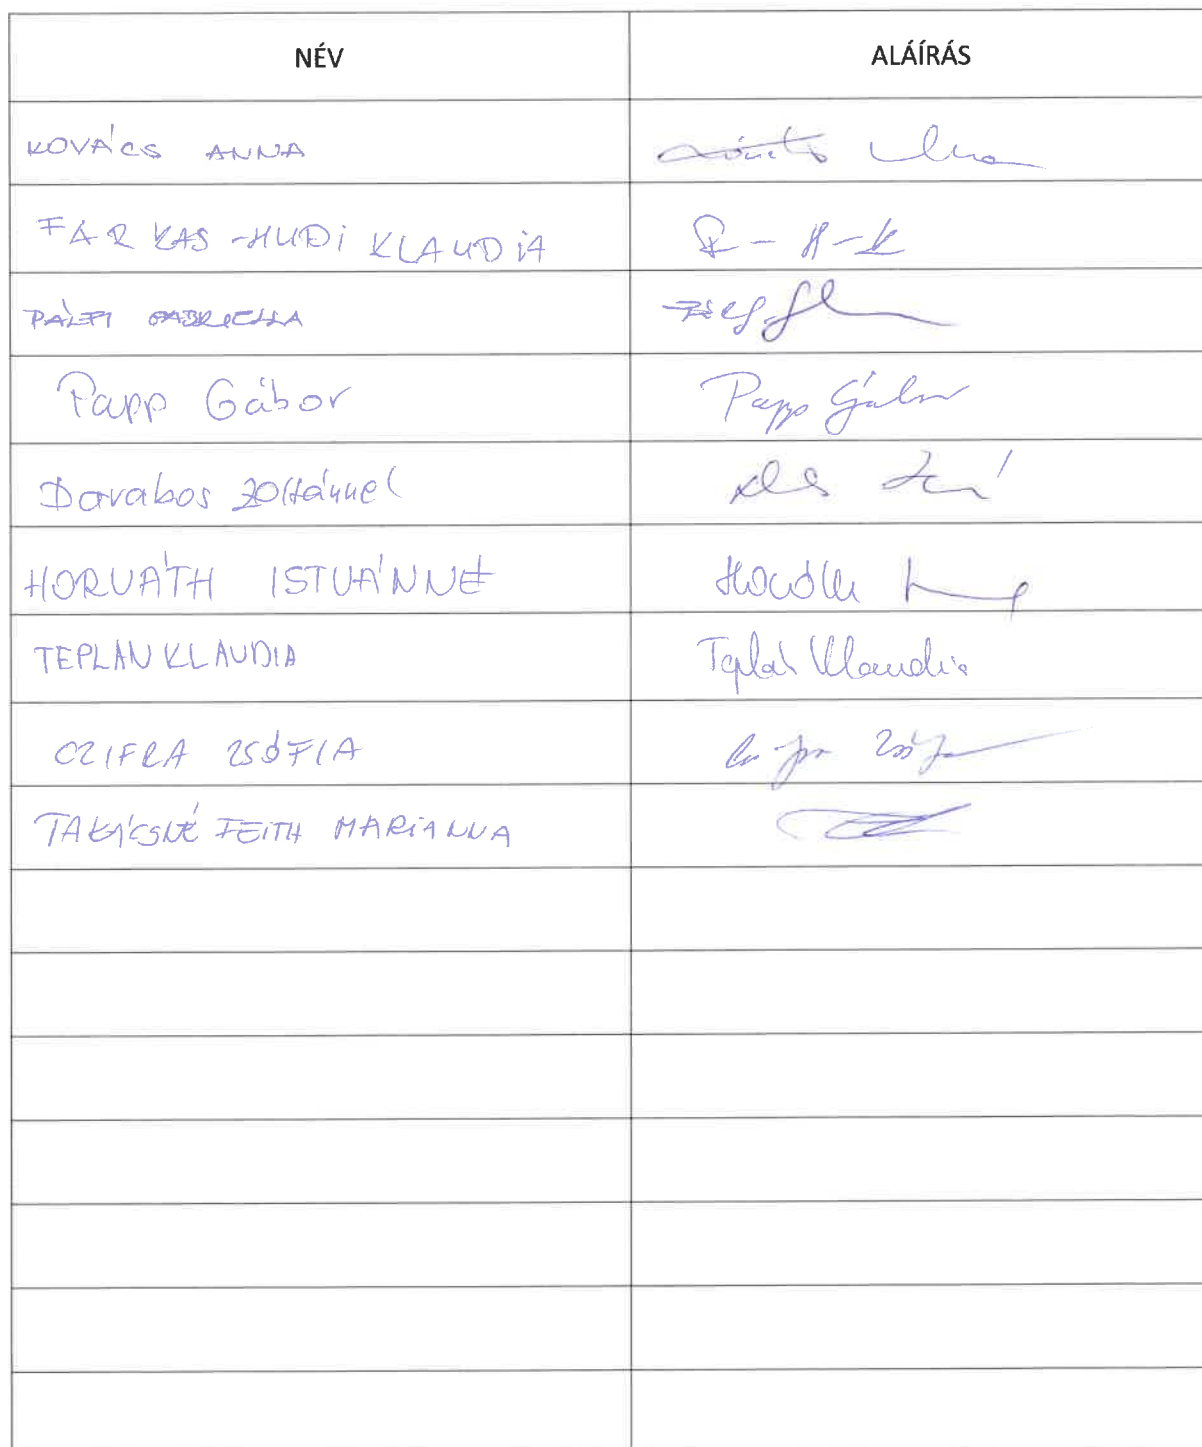 NÉV ALÁÍRÁS
KOVÁCS ANNA
FARKAS-HUDI KLAUDIA F-H-K
PÁLFI GABRIELLA
Papp Gábor Papp Gábor
Darabos Zoltánné
HORVÁTH ISTVÁNNÉ Horváth
TEPLÁN KLAUDIA Teplán Klaudia
CZIFRA ZSÓFIA
TAKÁCSNÉ FEITH MARIANNA